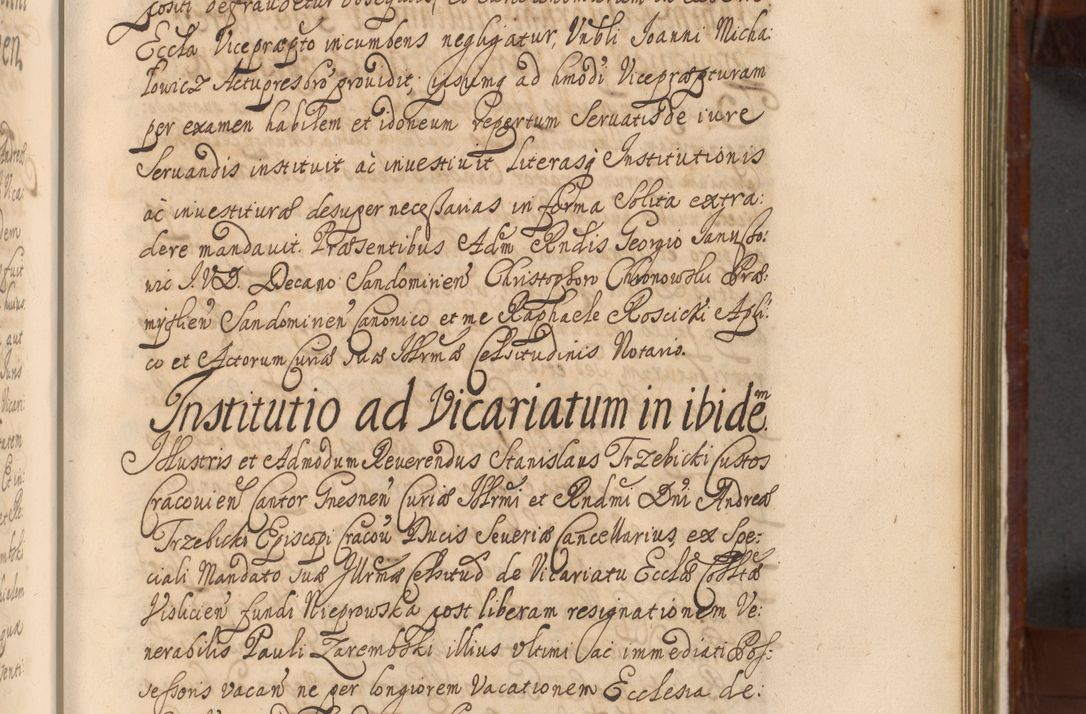 positi defraudetur obsequiis, et cura animarum in eadem
Eccla Viceprępto incumbens negligatur, Vnbli Joanni Micha:
łowicz Actupresbro prouidit, ipsumq ad hmodi Viceprępturam
per examen habilem et idoneum repertum Seruatis de iure
Seruandis instituit ac inuestiuit Literasq Institutionis
ac inuestituræ desuper necessarias in forma Solita extra:
dere mandauit. Præsentibus Adm Rndis Georgio Janusto:
wic J.V.D. Decano Sandomirien Christophoro Chronowski Præ:
myslien Sandomirien Canonico et me Raphaele Roscicki Apli:
co et Actorum Curiæ suæ Illrmæ Celsitudinis Notario.
Institutio ad Vicariatum in ibidem.
Illustris et Admodum Reuerendus Stanislaus Trzebicki Custos
Cracouien Cantor Gnesnen Curiæ Illrmi et Rndmi Dni Andreæ
Trzebicki Episcopi Cracou Ducis Seueriæ Cancellarius, ex Spe:
ciali Mandato suæ Illrmæ Celsitud de Vicariatu Ecclæ Colltæ
Vislicien fundi Nieprowska post liberam resignationem Ve:
nerabilis Pauli Zarembski illius vltimi ac immediati Pos:
sessoris vacan ne per longiorem Vacationem Ecclesia de: